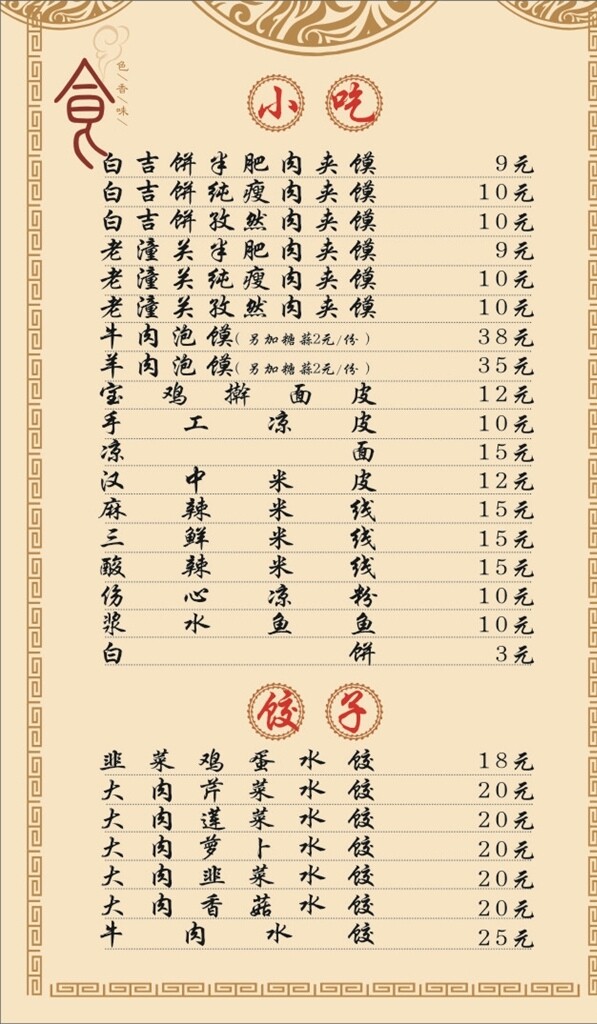 食
色/香/味/
小吃
白吉饼半肥肉夹馍 9元
白吉饼纯瘦肉夹馍 10元
白吉饼孜然肉夹馍 10元
老潼关半肥肉夹馍 9元
老潼关纯瘦肉夹馍 10元
老潼关孜然肉夹馍 10元
牛肉泡馍(另加糖蒜2元/份) 38元
羊肉泡馍(另加糖蒜2元/份) 35元
宝鸡擀面皮 12元
手工凉皮 10元
凉面 15元
汉中米皮 12元
麻辣米线 15元
三鲜米线 15元
酸辣米线 15元
伤心凉粉 10元
浆水鱼鱼 10元
白饼 3元
饺子
韭菜鸡蛋水饺 18元
大肉芹菜水饺 20元
大肉莲菜水饺 20元
大肉萝卜水饺 20元
大肉韭菜水饺 20元
大肉香菇水饺 20元
牛肉水饺 25元